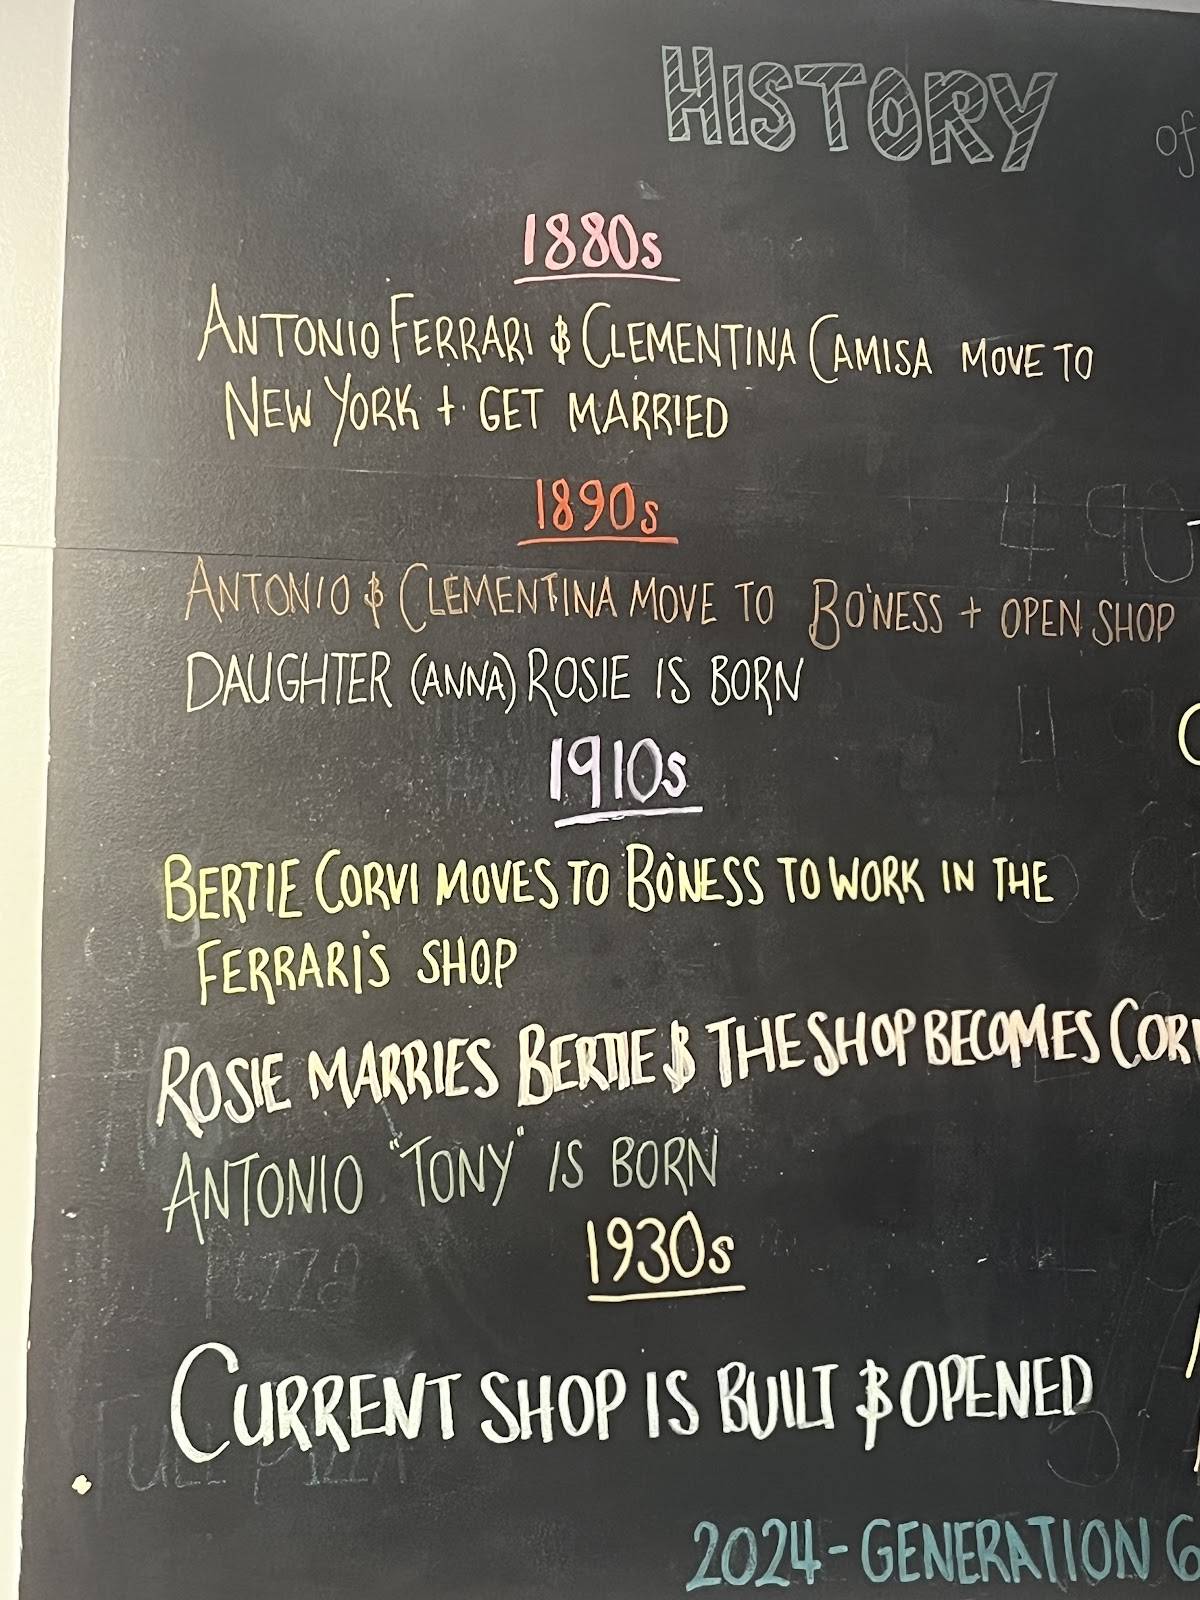 HISTORY of
1880s
ANTONIO FERRARI & CLEMENTINA CAMISA MOVE TO
NEW YORK + GET MARRIED
1890s
ANTONIO & CLEMENTINA MOVE TO BO'NESS + OPEN SHOP
DAUGHTER (ANNA) ROSIE IS BORN
1910s
BERTIE CORVI MOVES TO BO'NESS TO WORK IN THE
FERRARI'S SHOP
ROSIE MARRIES BERTIE & THE SHOP BECOMES
ANTONIO "TONY" IS BORN
1930s
Pizza
CURRENT SHOP IS BUILT & OPENED
FULL PIZZA
2024 - GENERATION 6